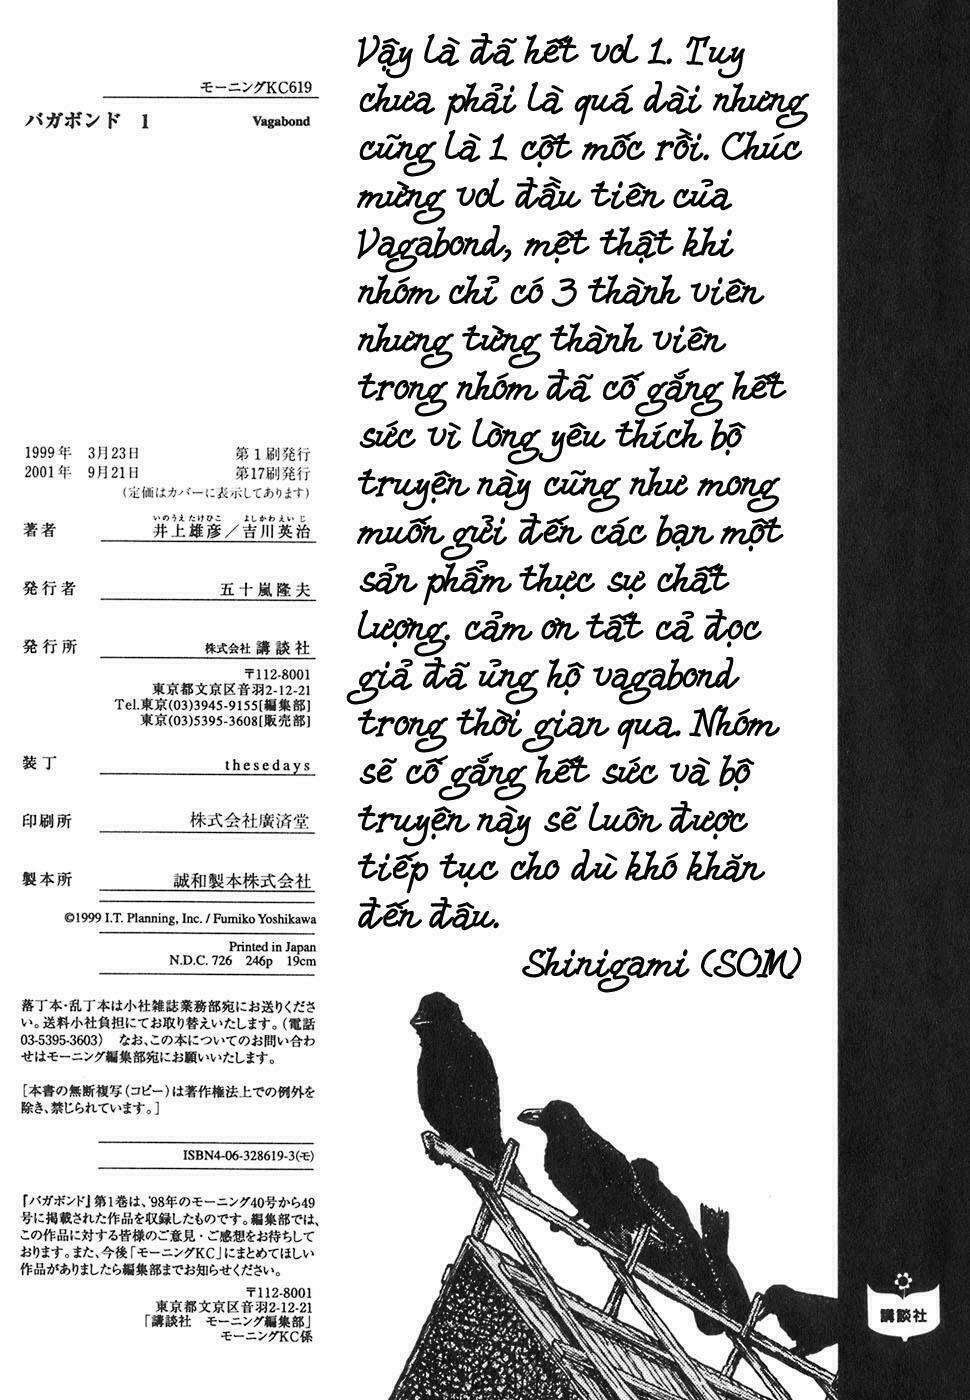 モーニングKC619
バガボンド 1 Vagabond
1999年 3月23日 第1刷発行
2001年 9月21日 第17刷発行
(定価はカバーに表示してあります)
いのうえたけひこ よしかわえいじ
著者 井上雄彦／吉川英治
発行者 五十嵐隆夫
発行所 株式会社 講談社
〒112-8001
東京都文京区音羽2-12-21
Tel.東京(03)3945-9155[編集部]
東京(03)5395-3608[販売部]
装丁 thesedays
印刷所 株式会社廣済堂
製本所 誠和製本株式会社
©1999 I.T. Planning, Inc. / Fumiko Yoshikawa
Printed in Japan
N.D.C. 726 246p 19cm
落丁本・乱丁本は小社雑誌業務部宛にお送りくださ
い。送料小社負担にてお取り替えいたします。（電話
03-5395-3603） なお、この本についてのお問い合わ
せはモーニング編集部宛にお願いいたします。
［本書の無断複写（コピー）は著作権法上での例外を
除き、禁じられています。］
ISBN4-06-328619-3(モ)
『バガボンド』第1巻は、'98年のモーニング40号から49
号に掲載された作品を収録したものです。編集部では、
この作品に対する皆様のご意見・ご感想をお待ちして
おります。また、今後「モーニングKC」にまとめてほしい
作品がありましたら編集部までお知らせください。
〒112-8001
東京都文京区音羽2-12-21
「講談社 モーニング編集部」
モーニングKC係
Vậy là đã hết vol 1. Tuy
chưa phải là quá dài nhưng
cũng là 1 cột mốc rồi. Chúc
mừng vol đầu tiên của
Vagabond, mệt thật khi
nhóm chỉ có 3 thành viên
nhưng từng thành viên
trong nhóm đã cố gắng hết
sức vì lòng yêu thích bộ
truyện này cũng như mong
muốn gửi đến các bạn một
sản phẩm thực sự chất
lượng. cảm ơn tất cả đọc
giả đã ủng hộ vagabond
trong thời gian qua. Nhóm
sẽ cố gắng hết sức và bộ
truyện này sẽ luôn được
tiếp tục cho dù khó khăn
đến đâu.
Shinigami (SOM)
講談社